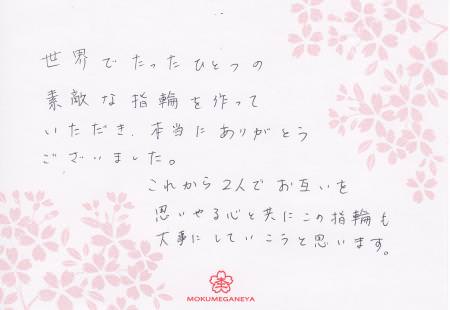 世界でたったひとつの
素敵な指輪を作って
いただき、本当にありがとう
ございました。
これから2人でお互いを
思いやる心と共にこの指輪も
大事にしていこうと思います。
MOKUMEGANEYA